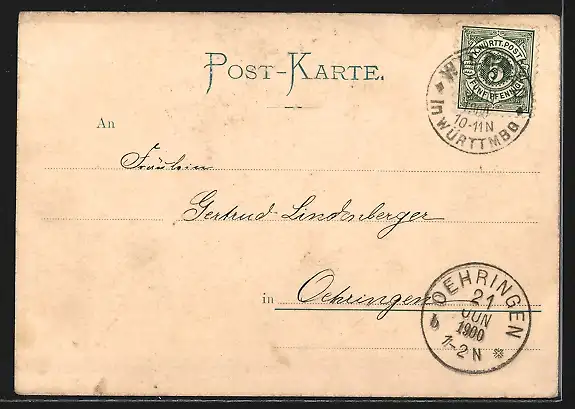 POST-KARTE.
K. WÜRTT. POST
5
FÜNF PFENNIG
10-11N
In WÜRTTMBG
An
Fräulein
Gertrud Lindenberger
in Oehringen
OEHRINGEN
21
JUN
1900
1-2N
b